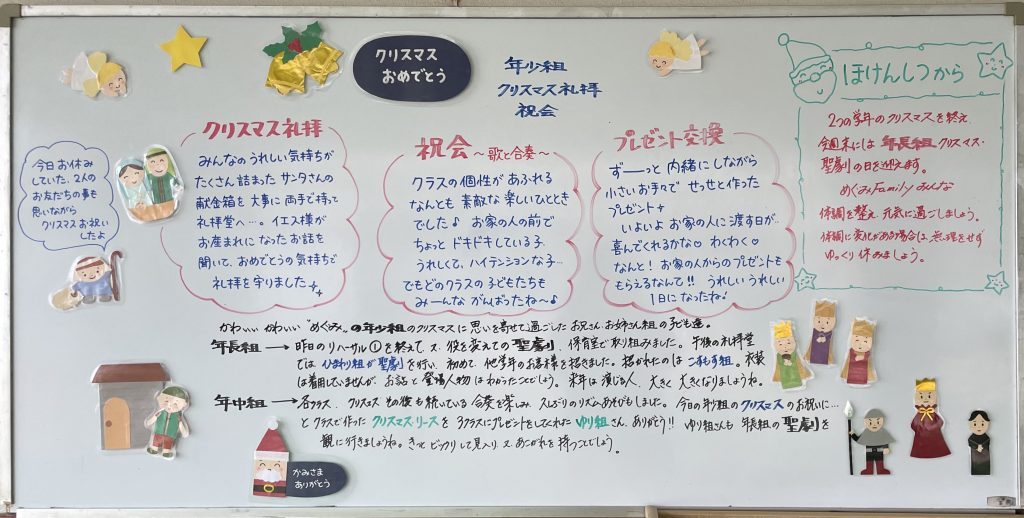 クリスマス
おめでとう
年少組
クリスマス礼拝
祝会
今日お休み
していた、2人の
お友だちの事も
思いながら
クリスマスお祝い
したよ
クリスマス礼拝
みんなのうれしい気持ちが
たくさん詰まった サンタさんの
献金箱を 大事に 両手で持って
礼拝堂へ…。イエス様が
お産まれに なった お話を
聞いて、おめでとうの気持ちで
礼拝を守りました
祝会 ～歌と合奏～
クラスの個性があふれる
なんとも 素敵な 楽しいひととき
でした♪ お家の人の前で
ちょっと ドキドキしている子…
うれしくて、ハイテンションな子…
でもどのクラスの子どもたちも
みーんな がんばったね～♪
プレゼント交換
ずーーっと 内緒にしながら
小さいお手々で せっせと作った
プレゼント
いよいよ お家の人に渡す日が…
喜んでくれるかな♡ わくわく♡
なんと！お家の人からのプレゼントも
もらえるなんて!! うれしい うれしい
1日になったね！
ほけんしつから
2つの学年のクリスマスを終え
今週末には 年長組クリスマス・
聖劇の日を迎えます。
めぐみFamily みんな
体調を整え 元気に過ごしましょう。
体調に変化がある場合は、無理をせず
ゆっくり休みましょう。
かわいい かわいい “めぐみ”の年少組のクリスマスに思いを寄せて過ごしたお兄さん、お姉さん組の子ども達。
年長組 → 昨日のリハーサル①を終えて、又、役を変えての聖劇、保育室で取り組みました。午後の礼拝堂
では ひまわり組が聖劇を行い、初めて、他学年のお客様を招きました。招かれたのは こすもす組。衣装
は着用していませんが、お話と登場人物はわかったことでしょう。来年は演じる人、大きく 大きくなりましょうね。
年中組 → 各クラス、クリスマスその後も続いている合奏を楽しみ、久しぶりのリズムあそびもしました。今日の年少組のクリスマスのお祝いに…
とクラスで作ったクリスマス・リースを 3クラスにプレゼントをしてくれた ゆり組さん、ありがとう!! ゆり組さんも 年長組の聖劇を
観に行きましょうね。きっとビックリして見入り 又 あこがれを持つことでしょう。
かみさま
ありがとう